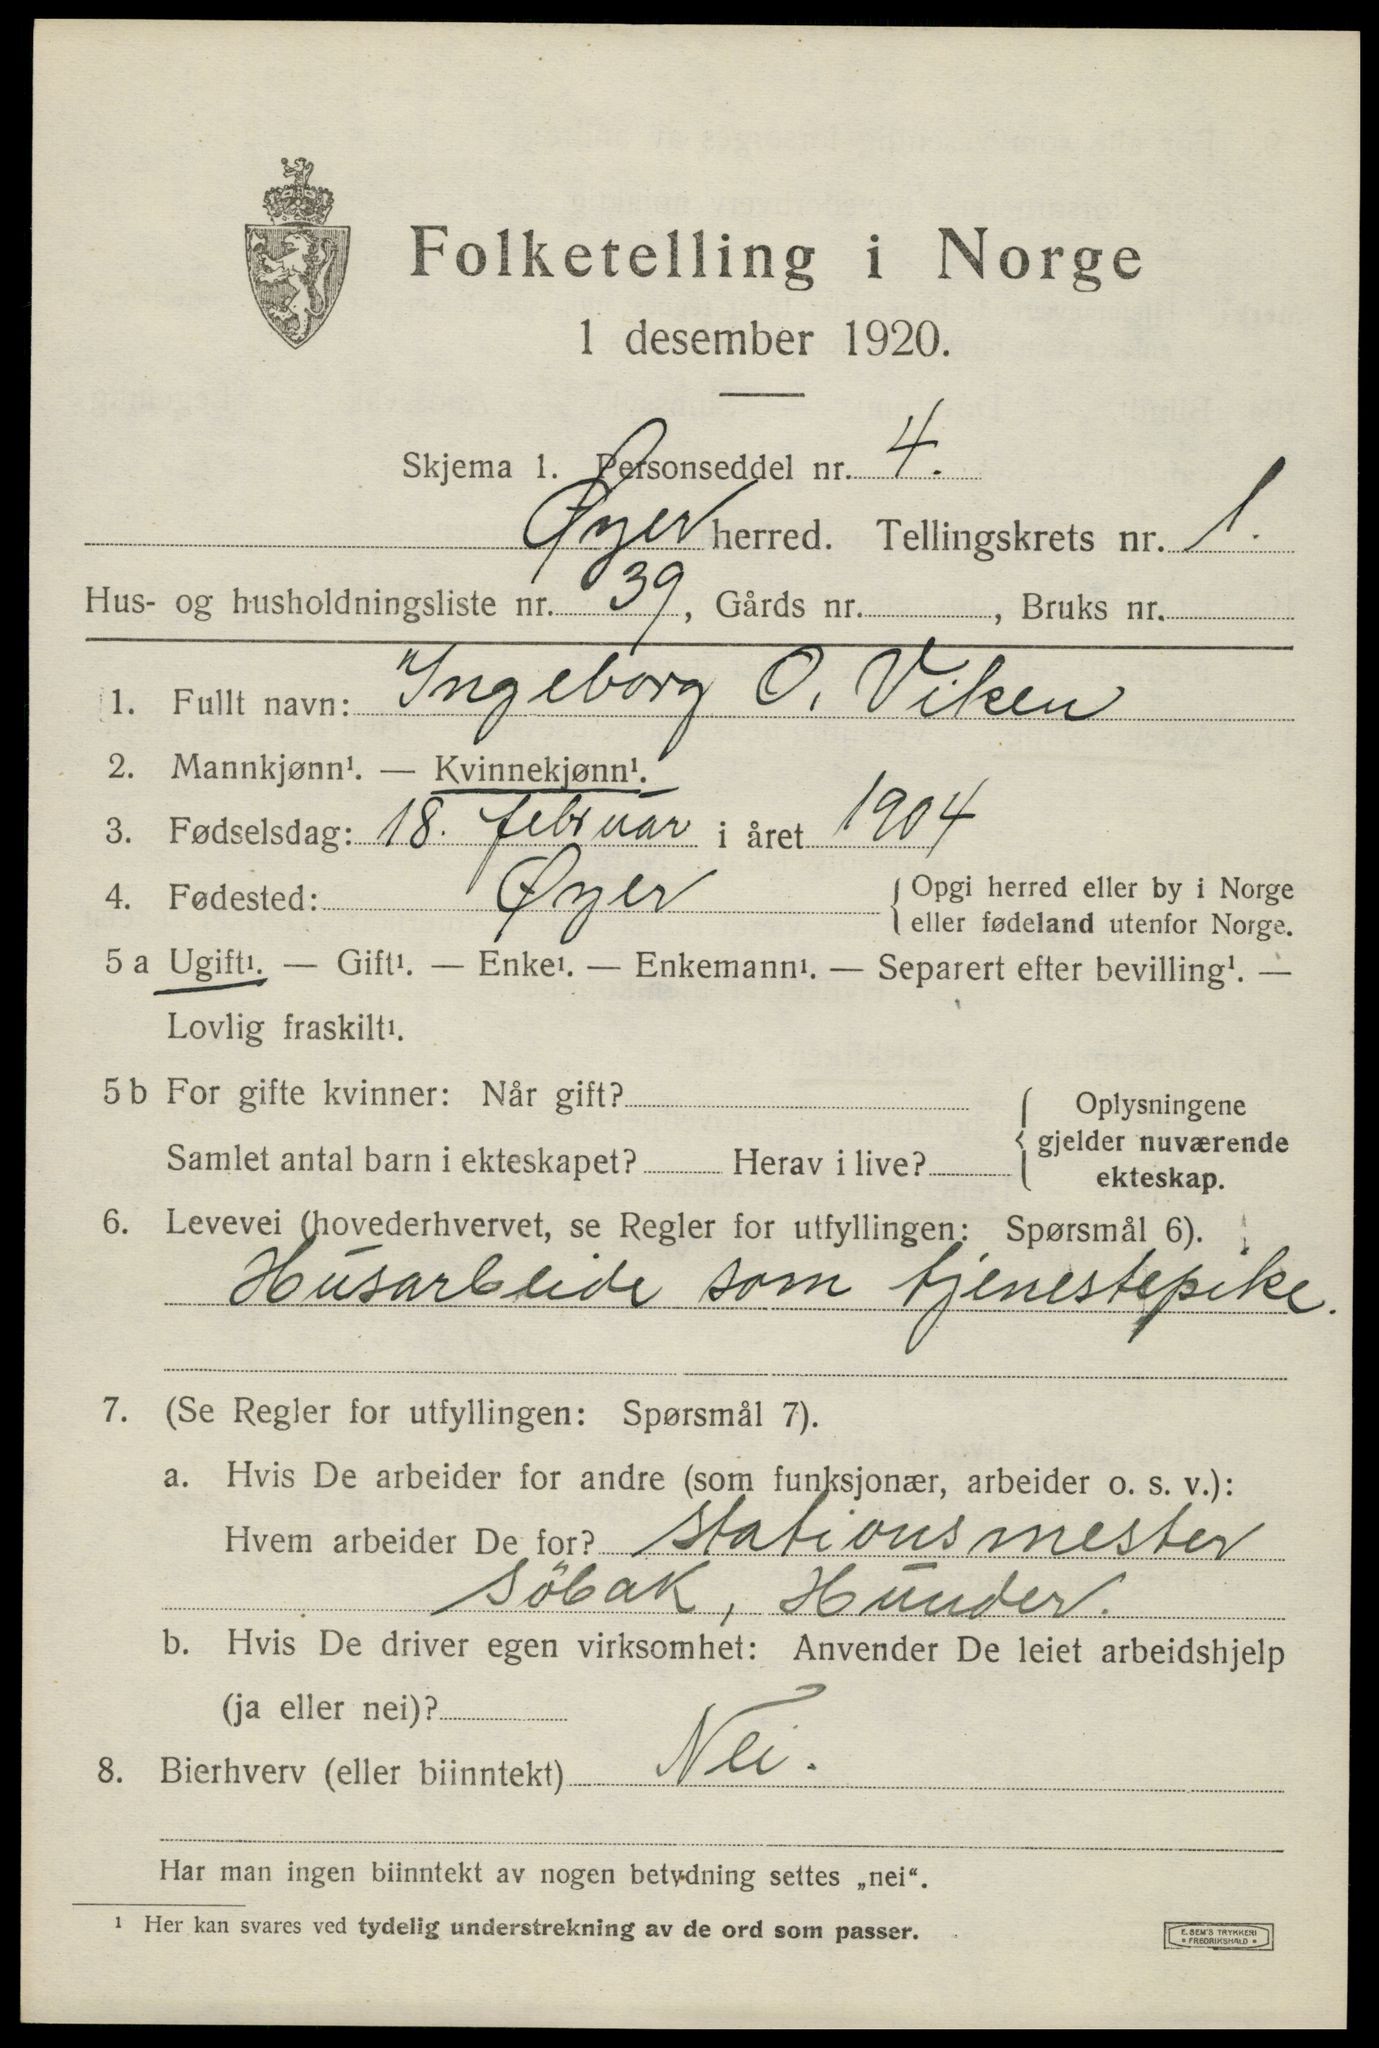 Folketelling i Norge
1 desember 1920.
Skjema 1. Personseddel nr. 4.
Øyer herred. Tellingskrets nr. 1.
Hus- og husholdningsliste nr. 39, Gårds nr. , Bruks nr.
1. Fullt navn: Ingeborg O. Viken
2. Mannkjønn¹. — Kvinnekjønn¹.
3. Fødselsdag: 18. februar i året 1904
4. Fødested: Øyer { Opgi herred eller by i Norge
eller fødeland utenfor Norge.
5 a Ugift¹. — Gift¹. — Enke¹. — Enkemann¹. — Separert efter bevilling¹. —
Lovlig fraskilt¹.
5 b For gifte kvinner: Når gift?
Samlet antal barn i ekteskapet? Herav i live?
{ Oplysningene
gjelder nuværende
ekteskap.
6. Levevei (hovederhvervet, se Regler for utfyllingen: Spørsmål 6).
Husarbeide som tjenestepike.
7. (Se Regler for utfyllingen: Spørsmål 7).
a. Hvis De arbeider for andre (som funksjonær, arbeider o. s. v.):
Hvem arbeider De for? stationsmester
Söbak, Hunder.
b. Hvis De driver egen virksomhet: Anvender De leiet arbeidshjelp
(ja eller nei)?
8. Bierhverv (eller biinntekt) Nei.
Har man ingen biinntekt av nogen betydning settes „nei“.
¹ Her kan svares ved tydelig understrekning av de ord som passer.
E. SEM'S TRYKKERI
• FREDRIKSHALD •